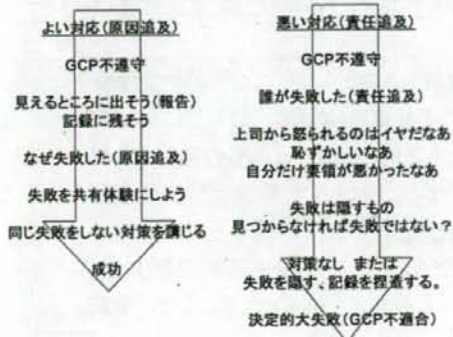 よい対応(原因追及)
GCP不遵守
見えるところに出そう(報告)
記録に残そう
なぜ失敗した(原因追及)
失敗を共有体験にしよう
同じ失敗をしない対策を講じる
成功
悪い対応(責任追及)
GCP不遵守
誰が失敗した(責任追及)
上司から怒られるのはイヤだなあ
恥ずかしいなあ
自分だけ要領が悪かったなあ
失敗は隠すもの
見つからなければ失敗ではない?
対策なし または
失敗を隠す、記録を捏造する。
決定的大失敗(GCP不適合)